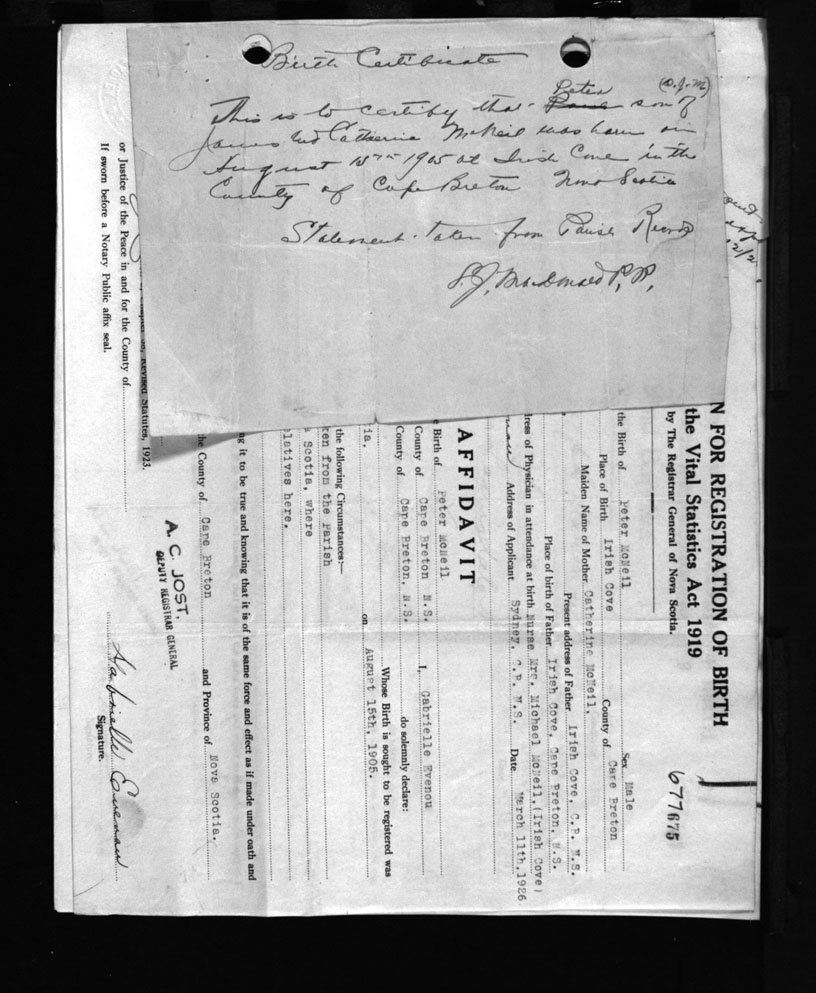 Birth Certificate
This is to certify that Peter (D.J.M) son of
James and Catherine McNeil was born on
August 15th 1905 at Irish Cove in the
County of Cape Breton Nova Scotia
Statement taken from Parish Records
MacDonald P.P.
N FOR REGISTRATION OF BIRTH
the Vital Statistics Act 1919
by The Registrar General of Nova Scotia.
677675
the Birth of Peter McNeil Sex Male
Place of Birth Irish Cove County of Cape Breton
Maiden Name of Mother Catherine McNeil.
Present address of Father Irish Cove, C.B. N.S.
Place of birth of Father Irish Cove, Cape Breton, N.S.
dress of Physician in attendance at birth Nurse Mrs. Michael McNeil.(Irish Cove)
Address of Applicant Sydney, C.B. N.S. Date March 11th,1926
AFFIDAVIT
e Birth of Peter McNeil
County of Cape Breton N.S. I, Gabrielle Evenou
County of Cape Breton, N.S. do solemnly declare:
Whose Birth is sought to be registered was
ia, on August 15th, 1905.
the following Circumstances:—
ken from the Parish
a Scotia, where
latives here.
ng it to be true and knowing that it is of the same force and effect as if made under oath and
the County of Cape Breton and Province of Nova Scotia.
A. C. JOST,
DEPUTY REGISTRAR GENERAL
Gabrielle Evenou
Signature.
Revised Statutes, 1923.
or Justice of the Peace in and for the County of
If sworn before a Notary Public affix seal.